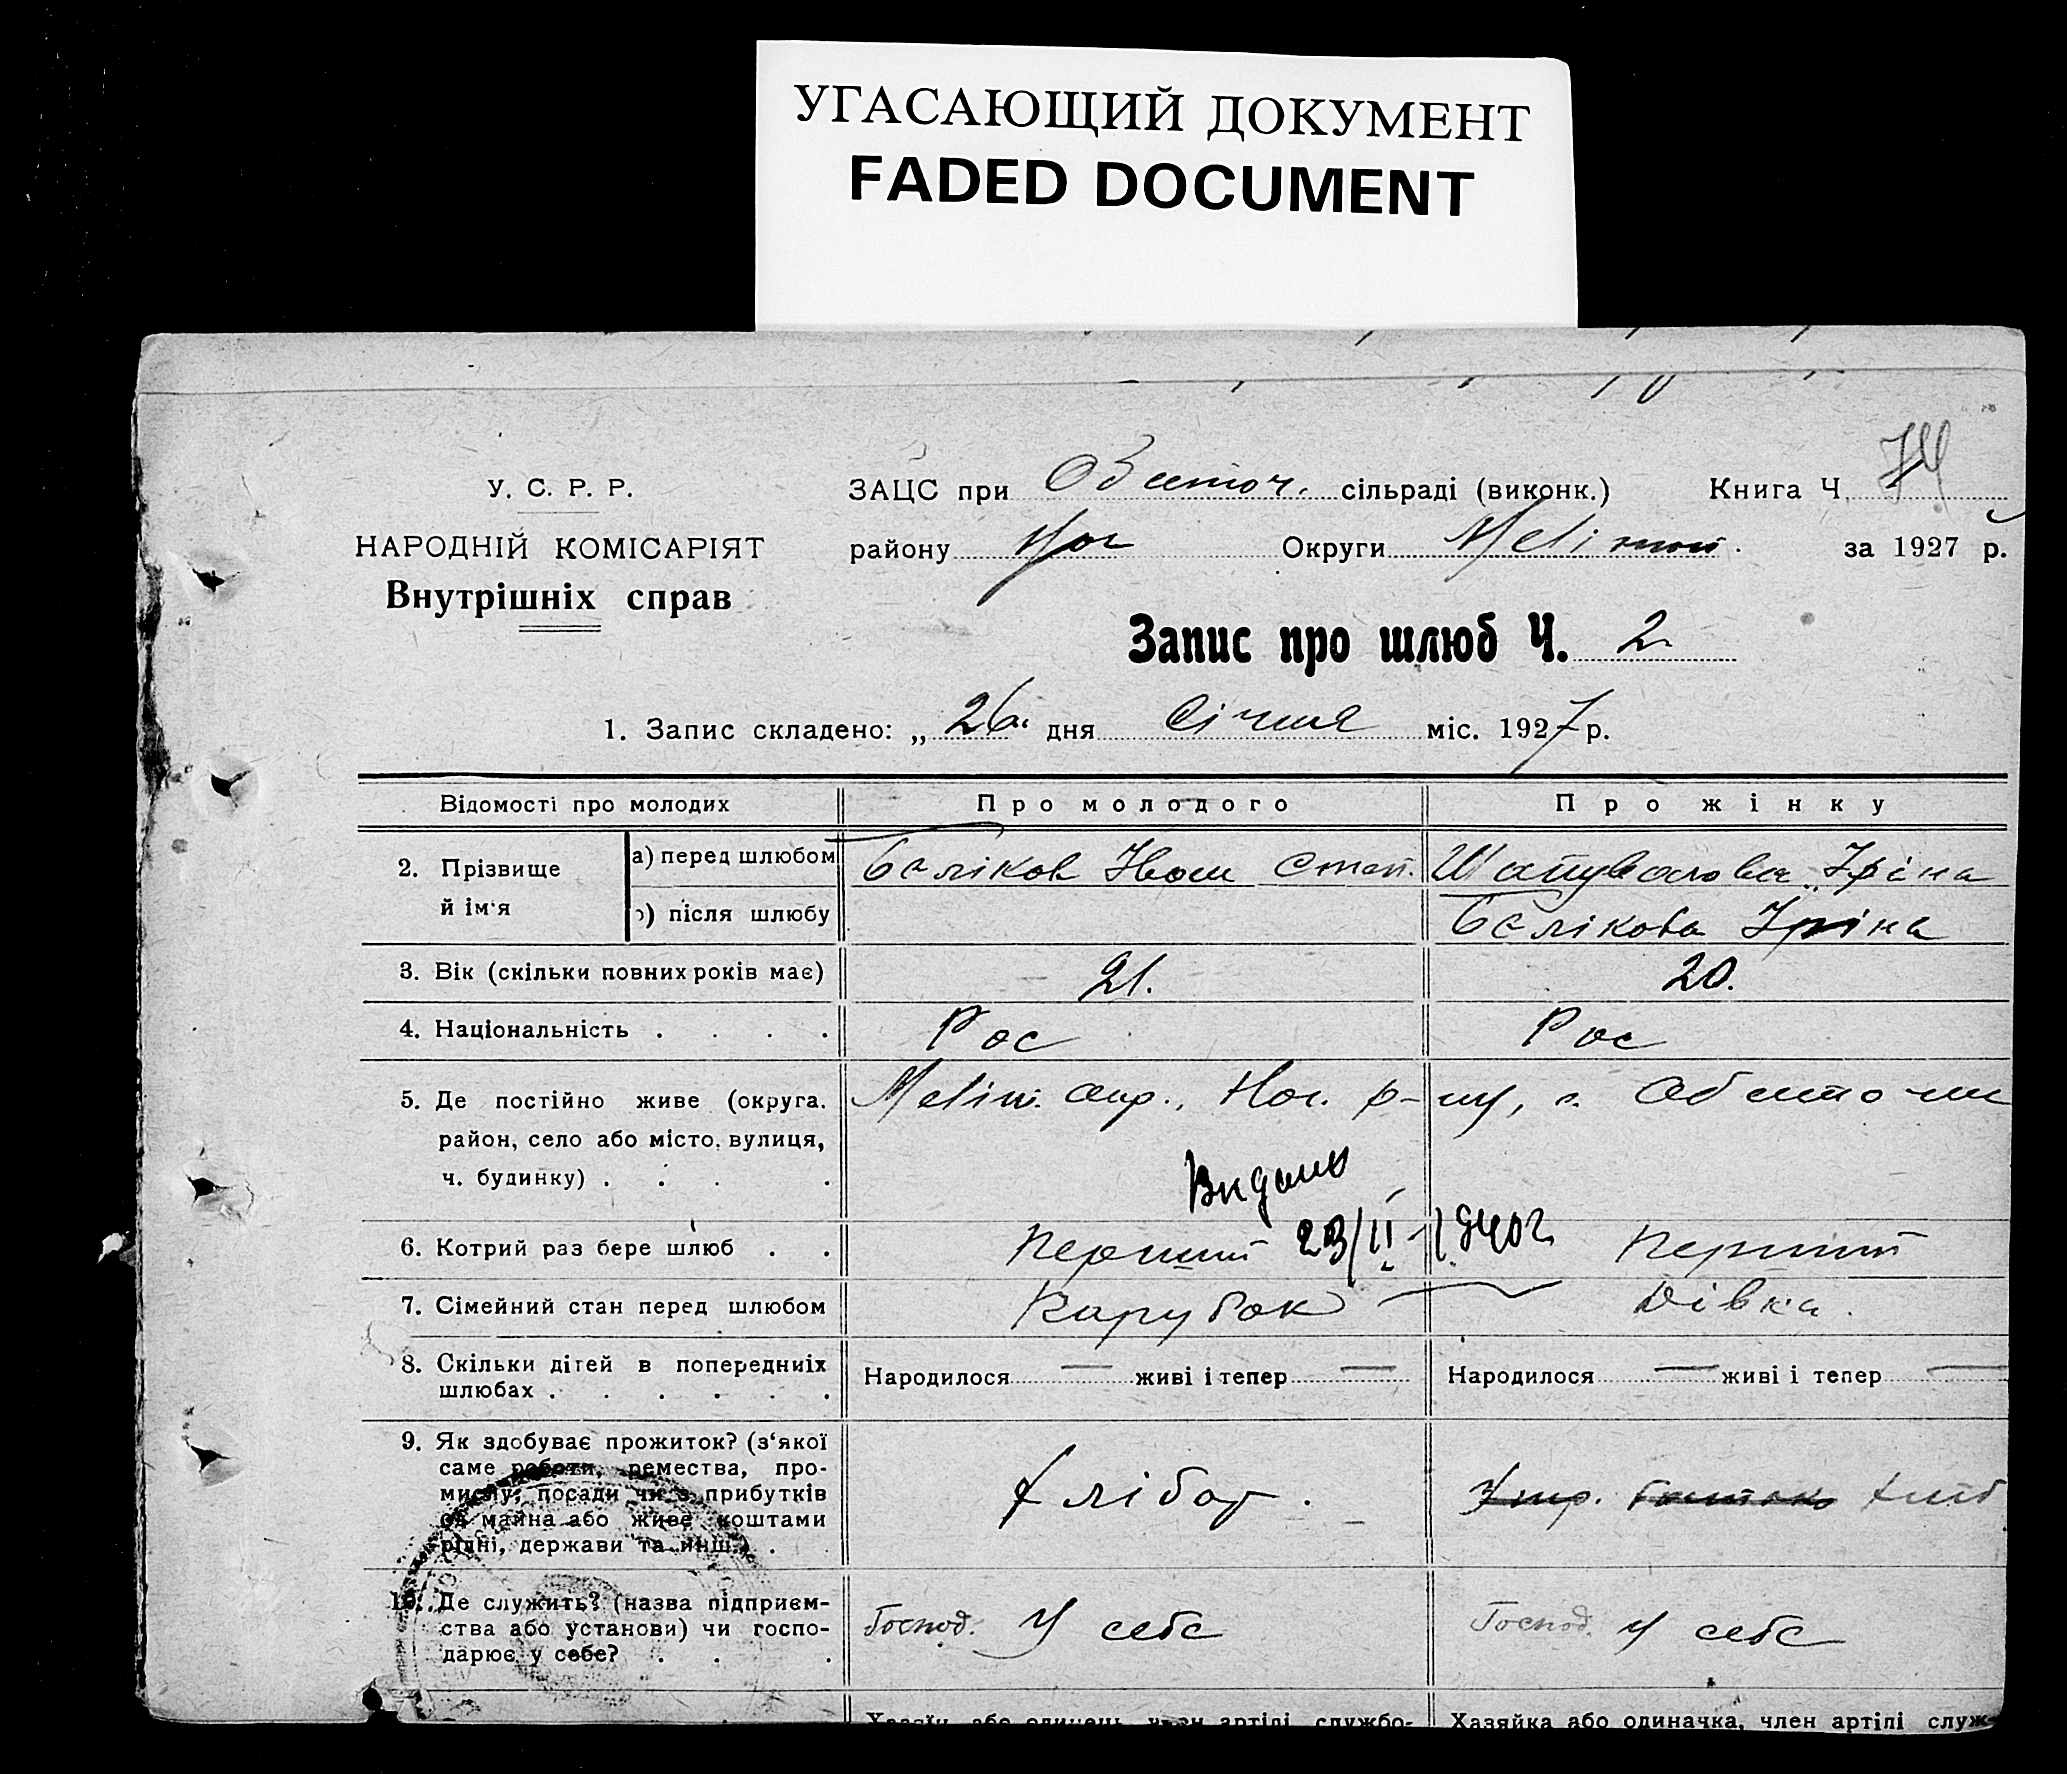 УГАСАЮЩИЙ ДОКУМЕНТ
FADED DOCUMENT
У. С. Р. Р.
НАРОДНІЙ КОМІСАРІЯТ
Внутрішніх справ
ЗАЦС при Обиточ. сільраді (виконк.) Книга Ч. 74
району Ног Округи Меліт за 1927 р.
Запис про шлюб Ч. 2
1. Запис складено: „ 26 " дня Січня міс. 1927 р.
Відомості про молодих Про молодого Про жінку
2. Прізвище й ім'я
а) перед шлюбом Бєліков Іван Степ. Шаповалова Іріна
б) після шлюбу Бєлікова Іріна
3. Вік (скільки повних років має) 21. 20.
4. Національність . . . . Рос Рос
5. Де постійно живе (округа, Меліт. окр., Ног. р-ну, с. Обиточни
район, село або місто, вулиця,
ч. будинку) . . . .
Видано
23/II-1940г.
6. Котрий раз бере шлюб . . Перший Перший
7. Сімейний стан перед шлюбом Парубок Дівка.
8. Скільки дітей в попередниіх Народилося — живі і тепер — Народилося — живі і тепер —
шлюбах . . . . . .
9. Як здобуває прожиток? (з'якої
саме роботи, ремества, про-
мислу, посади чи з прибутків хлібор.
од майна або живе коштами
рідні, держави та инш.) .
10. Де служить? (назва підприєм-
ства або установи) чи госпо- Господ. У себе Господ. У себе
дарює у себе? . . .
Хазяїн або одинець, член артілі службо- Хазяйка або одиначка, член артілі служ-